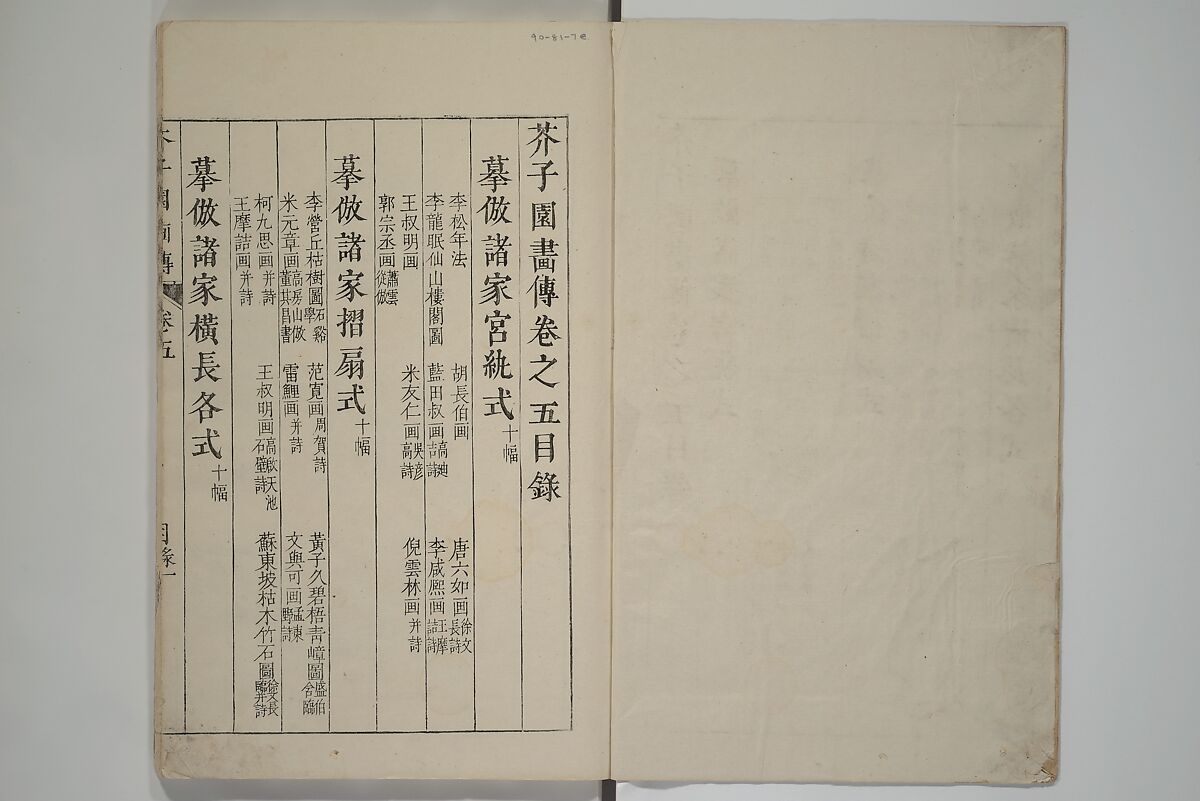 90-81-7e
芥子園畫傳卷之五目錄
摹倣諸家宮紈式十幅
李松年法 胡長伯画 唐六如画徐文長詩
李龍眠仙山樓閣圖 藍田叔画高迪吉詩 李咸熙画王摩詰詩
王叔明画 米友仁画吳彥高詩 倪雲林画并詩
郭宗丞画蕭雲從倣
摹倣諸家摺扇式十幅
李營丘枯樹圖石谿學 范寬画周賀詩 黃子久碧梧青嶂圖盛伯含臨
米元章画高房山倣董其昌書 雷鯉画并詩 文與可画孟東野詩
柯九思画并詩 王叔明画高啟天池石壁詩 蘇東坡枯木竹石圖徐文長臨并詩
王摩詰画并詩
摹倣諸家橫長各式十幅
芥子園画傳 卷五 目錄一